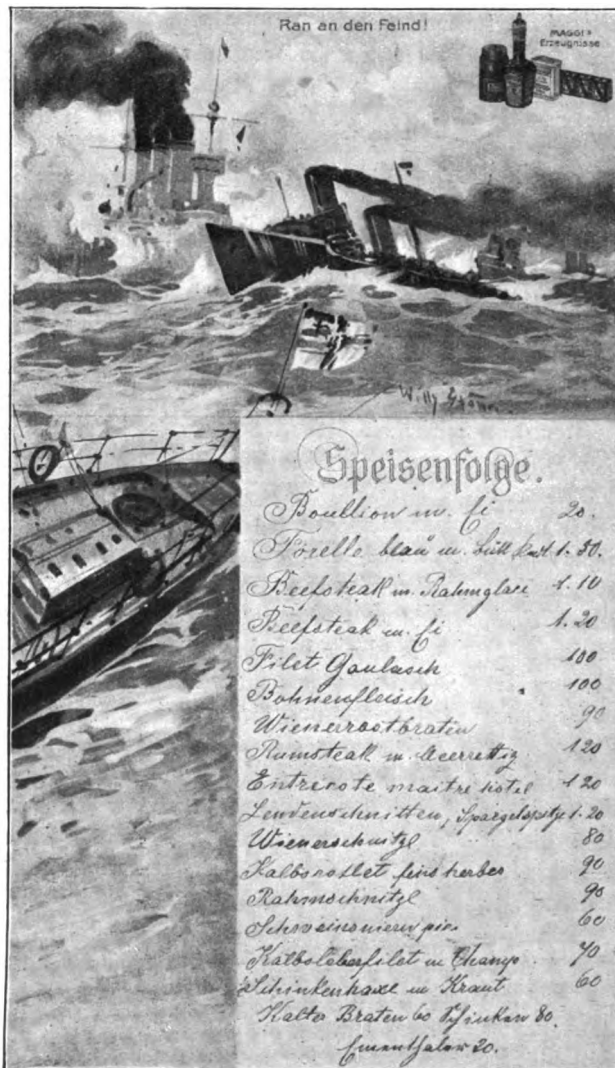 Ran an den Feind!
MAGGI's
Erzeugnisse
Willy Stöwer
Speisenfolge.
Boullion m. Ei 20.
Forelle blau m. Butt 1.50.
Beefsteak m. Rahmglace 1.10
Beefsteak m. Ei 1.20
Filet Goulasch 100
Bohnenfleisch 100
Wienerrostbraten 90
Rumsteak m. Meerrettig 120
Entrecote maitre hotel 120
Lendenschnitten, Spargelspitze 1.20
Wienerschnitzl 80
Kalbscotlet fins herbes 90
Rahmschnitzl 90
Schweinsnieren 60
Kalbsleberfilet m Champ. 70
Schinkenhaxe m Kraut 60
Kalter Braten 60 Schinken 80.
Ementhaler 20.